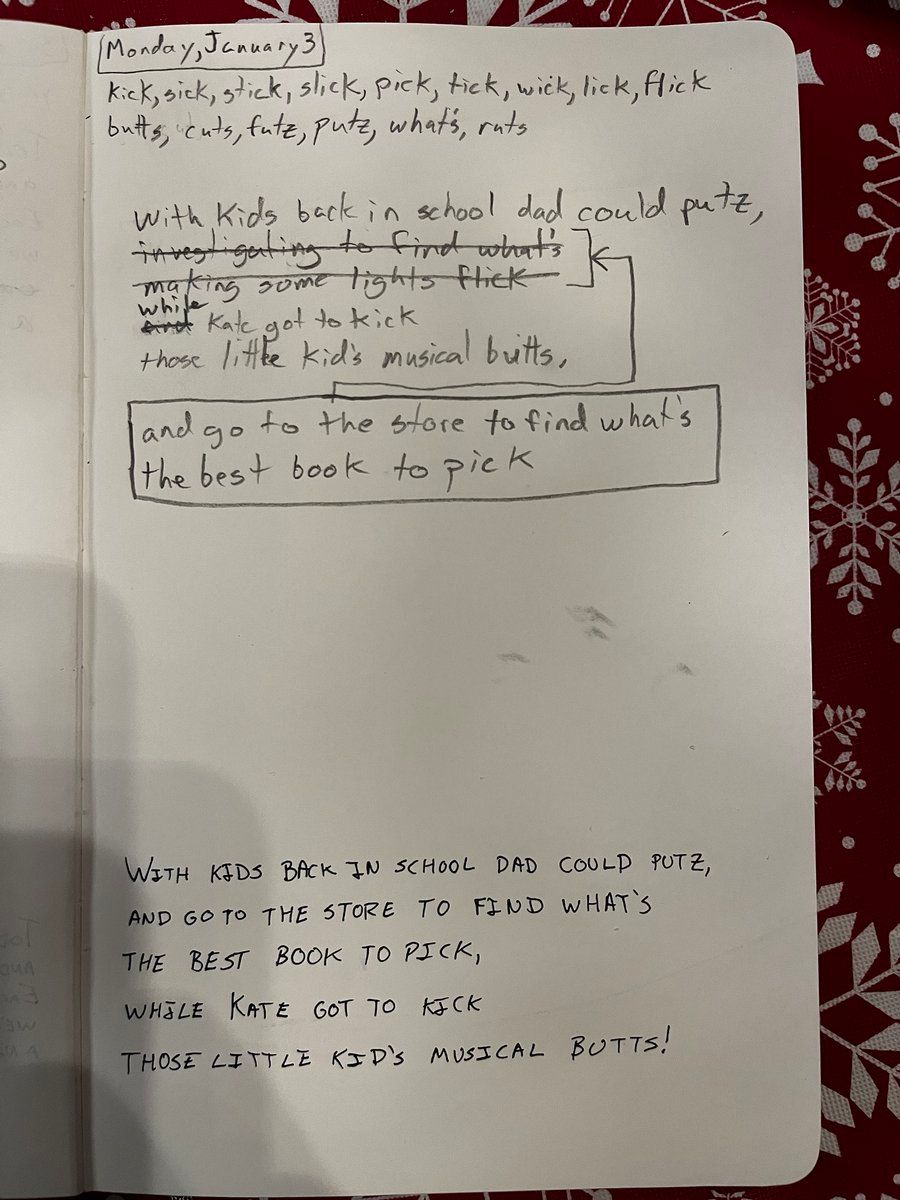 Monday, January 3
kick, sick, stick, slick, pick, tick, wick, lick, flick
butts, cuts, futz, putz, what's, ruts
With Kids back in school dad could putz,
investigating to find what's
making some lights flick
while
and Kate got to kick
those little kid's musical butts,
and go to the store to find what's
the best book to pick
WITH KIDS BACK IN SCHOOL DAD COULD PUTZ,
AND GO TO THE STORE TO FIND WHAT'S
THE BEST BOOK TO PICK,
WHILE KATE GOT TO KICK
THOSE LITTLE KID'S MUSICAL BUTTS!